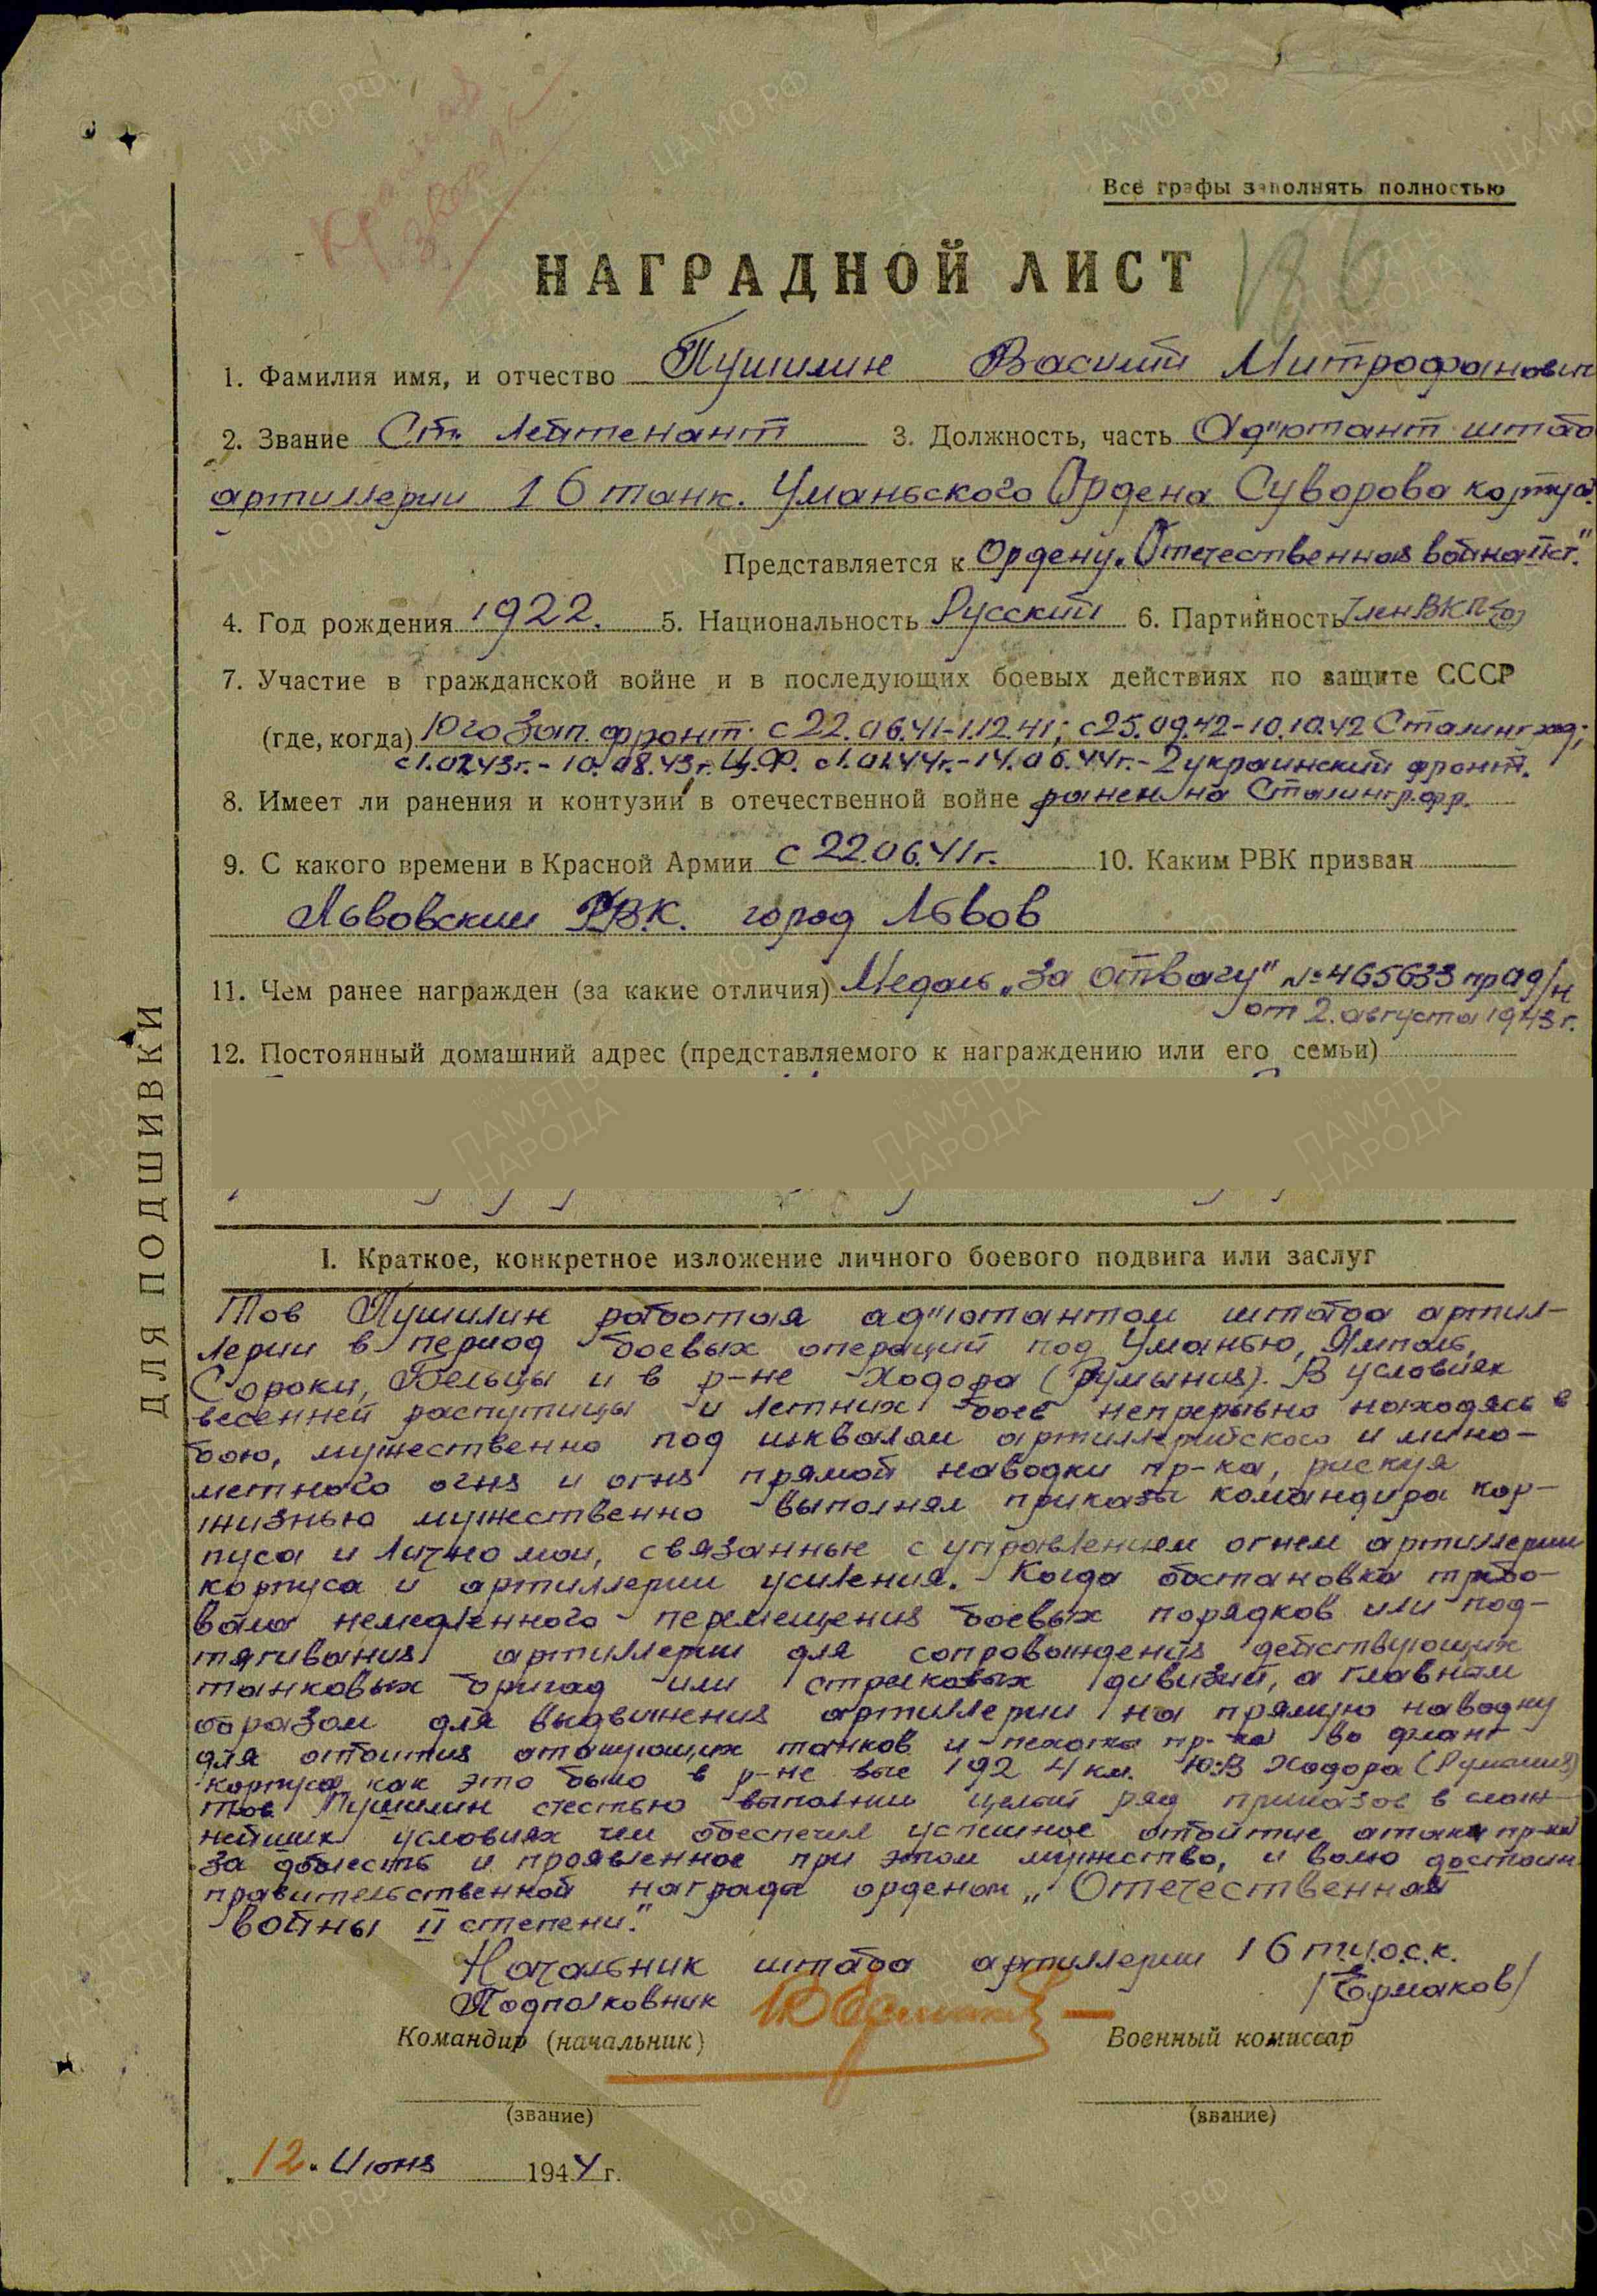 Красная звезда
Все графы заполнять полностью
НАГРАДНОЙ ЛИСТ
1. Фамилия имя, и отчество Пушилин Василий Митрофанович
2. Звание Ст. лейтенант 3. Должность, часть Ад"ютант штаба
артиллерии 16 танк. Уманьского Ордена Суворова корпуса.
Представляется к Ордену „Отечественная война II ст."
4. Год рождения 1922. 5. Национальность Русский 6. Партийность Член ВКП(б)
7. Участие в гражданской войне и в последующих боевых действиях по защите СССР
(где, когда) Юго Зап. фронт. с 22.06.41-1.12.41; с 25.09.42-10.10.42 Сталинград;
с 1.02.43г.- 10.08.43г. Ц.Ф. с 1.01.44г.-14.06.44г.-2 украинский фронт.
8. Имеет ли ранения и контузии в отечественной войне ранен на Сталингр.фр.
9. С какого времени в Красной Армии с 22.06.41г. 10. Каким РВК призван
Львовским РВ.К. город Львов
11. Чем ранее награжден (за какие отличия) Медаль „За отвагу" № 465633 пр ад/н
от 2. августа 1943г.
12. Постоянный домашний адрес (представляемого к награждению или его семьи)
ДЛЯ ПОДШИВКИ
I. Краткое, конкретное изложение личного боевого подвига или заслуг
Тов Пушилин работая ад"ютантом штаба артил-
лерии в период боевых операций под Уманью, Ямполь,
Сороки, Бельцы и в р-не Ходора (Румыния). В условиях
весенней распутицы и летних боев непрерывно находясь в
бою, мужественно под шквалом артиллерийского и мино-
метного огня и огня прямой наводки пр-ка, рискуя
жизнью мужественно выполнял приказы командира кор-
пуса и лично мои, связанные с управлением огнем артиллерии
корпуса и артиллерии усиления. Когда обстановка требо-
вала немедленного перемещения боевых порядков или под-
тягивания артиллерии для сопровождения действующих
танковых бригад или стрелковых дивизий, а главным
образом для выдвижения артиллерии на прямую наводку
для отбития атакующих танков и пехоты пр-ка во фланг
корпуса, как это было в р-не выс 192 4 км. Ю:В Ходора (Румыния)
тов. Пушилин с честью выполнил целый ряд приказов в слож-
нейших условиях чем обеспечил успешное отбитие атаки пр-ка
За доблесть и проявленное при этом мужество, и волю достоин
правительственной награды орденом „Отечественной
войны II степени".
Начальник штаба артиллерии 16 т.у.о.с.к.
Подполковник /Ермаков/
Командир (начальник) Военный комиссар
(звание) (звание)
„12. Июня 1944 г.
ЦА МО РФ
ПАМЯТЬ НАРОДА